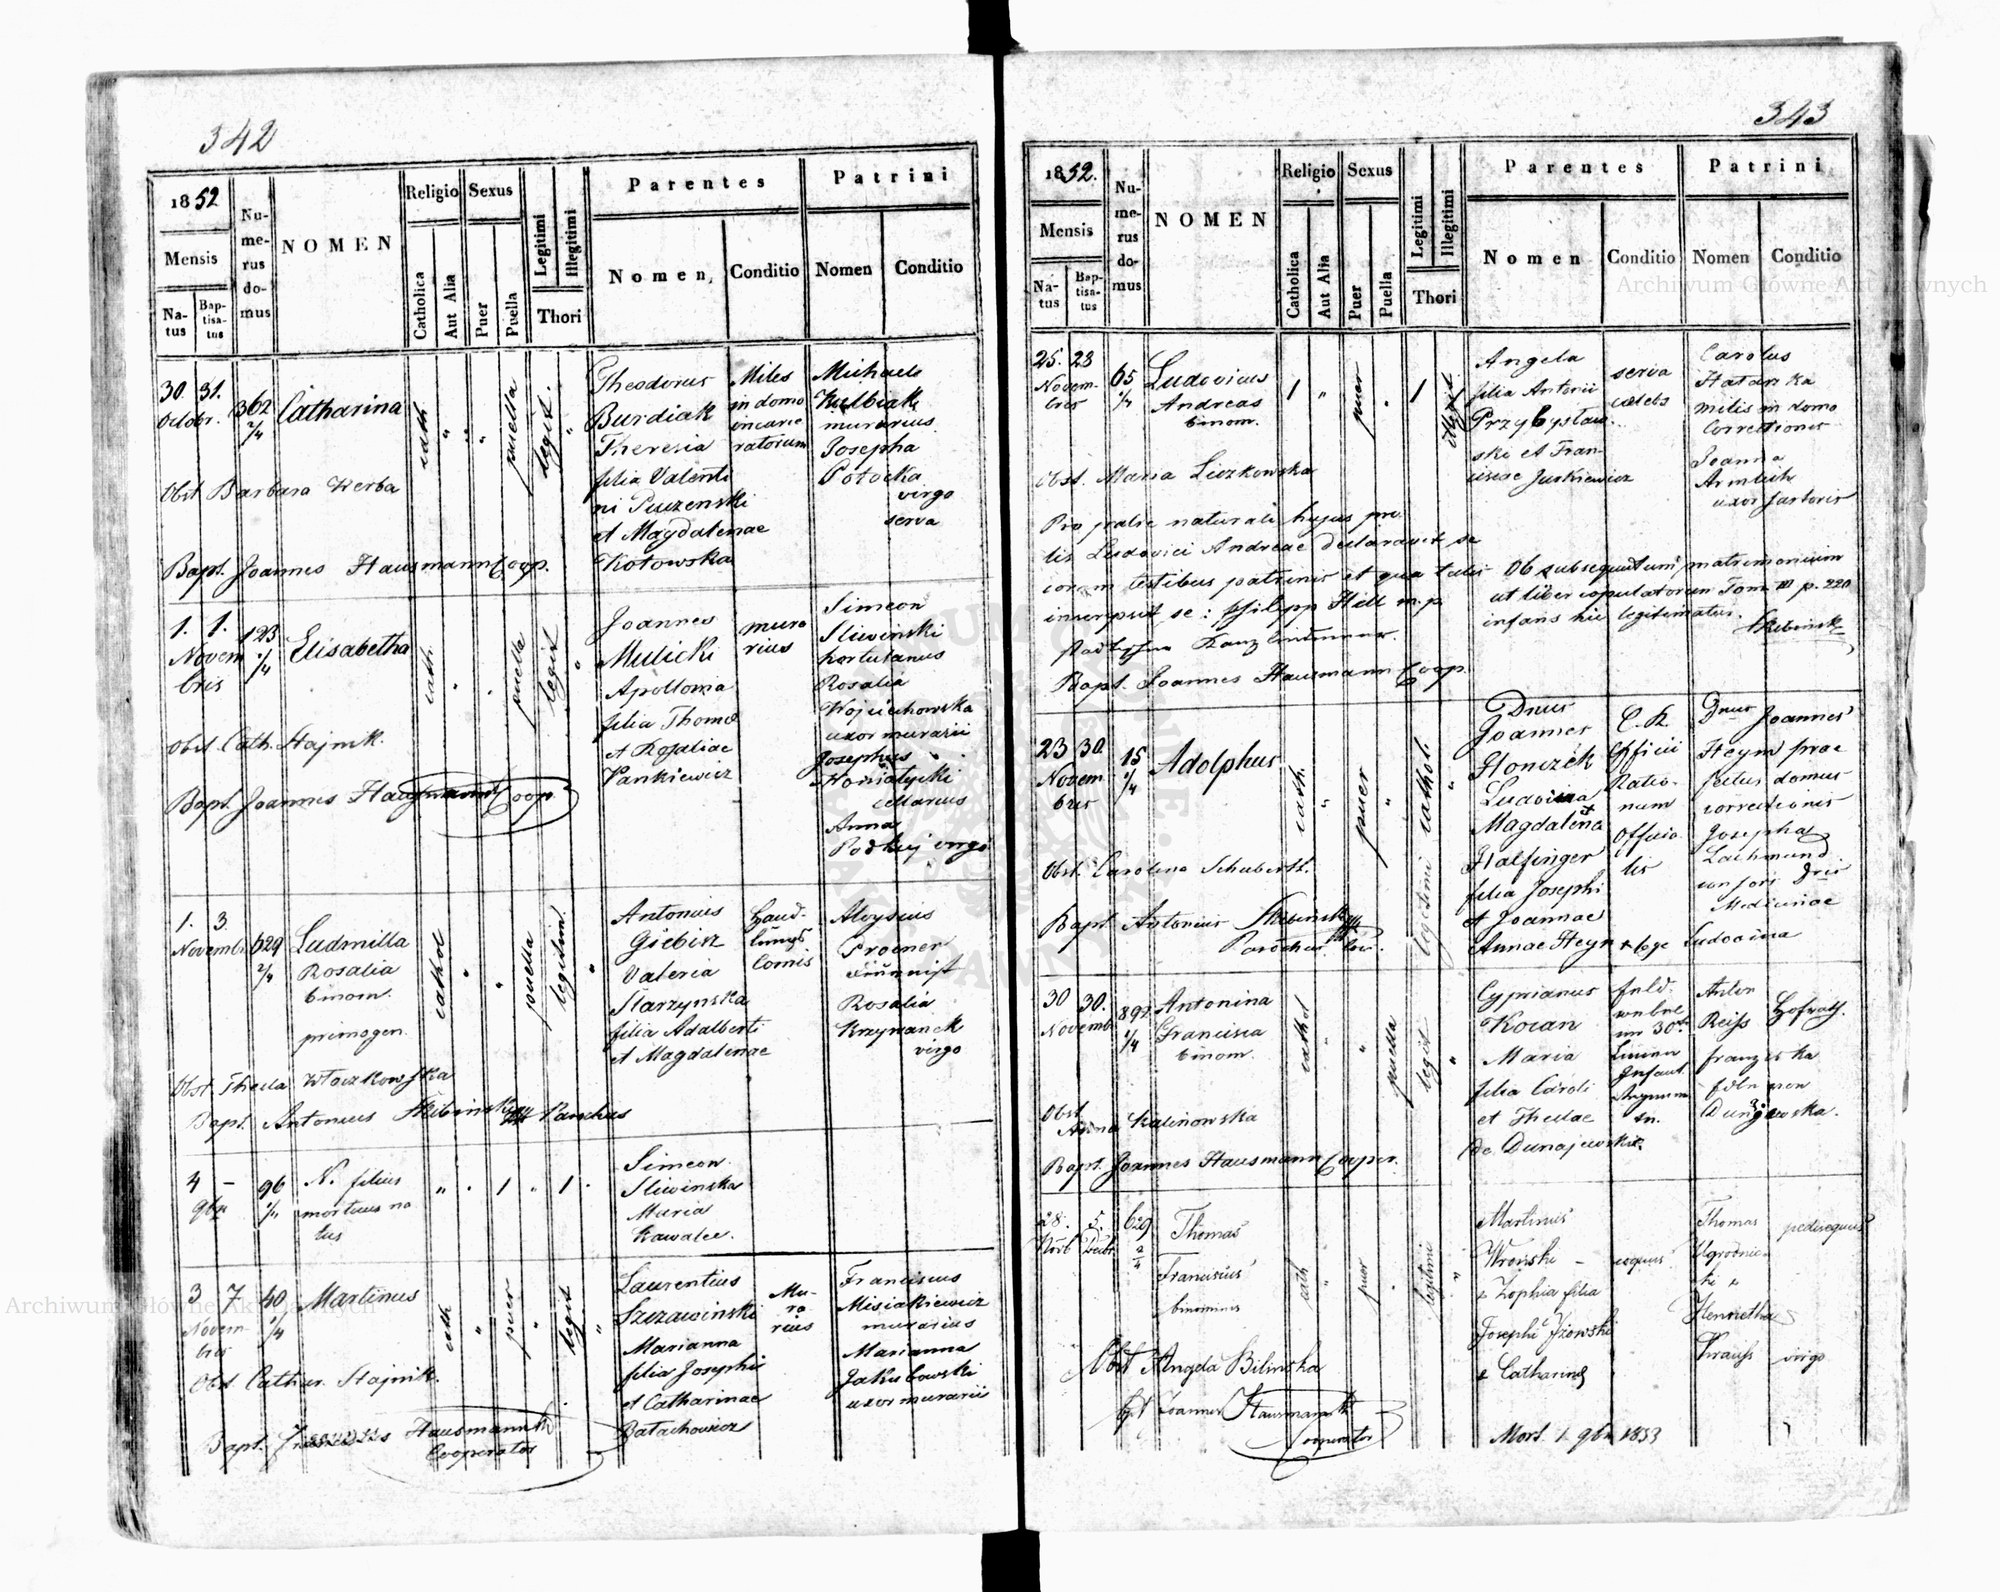 342
1852
Mensis
Na-
tus
Bap-
tisa-
tus
Nu-
me-
rus
do-
mus
NOMEN
Religio
Catholica
Aut Alia
Sexus
Puer
Puella
Legitimi
Illegitimi
Thori
Parentes
Nomen,
Conditio
Patrini
Nomen
Conditio
30. 31.
Octobr.
362
2/4
Catharina
cath.
puella
legit.
Theodorus
Burdiak
Theresia
filia Valenti
ni Puszenski
et Magdalenae
Kotowska
Miles
in domo
incarce
ratorum
Michael
Kulbiak
murarius
Josepha
Potocka
virgo
serva
Obst Barbara Werba
Bapt. Joannes Hausmann Coop.
1. 1.
Novem
bris
123
1/4
Elisabetha
cath.
puella
legit
Joannes
Mulicki
Apollonia
filia Thomae
et Rosaliae
Pankiewicz
mura
rius
Simeon
Sliwinski
hortulanus
Rosalia
Wojciechowska
uxor murarii
Josephus
Horniatycki
cellarius
Anna
virgo
Obst. Cath. Hajnik.
Bapt. Joannes Hausmann Coop.
1. 3.
Novemb
629
2/4
Ludmilla
Rosalia
binom.
primogen.
cathol
puella
legitim.
Antonius
Giebisz
Valeria
Starzynska
filia Adalberti
et Magdalenae
Handlungs
Comis
Aloysius
Proener
Rosalia
Krzywanek
virgo
Obst Thecla Wloczkowska
Bapt. Antonius Skibinski Parochus
4 -
9br
96
1/4
N. filius
mortuus na
tus
1
1
Simeon
Sliwinska
Maria
Kawalec.
3 7
Novem-
bris
40
1/4
Martinus
cath
puer
legit
Laurentius
Szczawinski
Marianna
filia Josephi
et Catharinae
Batachowicz
Mu-
ra
rius
Franciscus
Misiakiewicz
murarius
Marianna
Jakubowski
uxor murarii
Obst Cathar. Hajnik.
Bapt. Joannes Hausmann
Cooperator
343
1852.
Mensis
Na-
tus
Bap-
tisa-
tus
Nu-
me-
rus
do-
mus
NOMEN
Religio
Catholica
Aut Alia
Sexus
Puer
Puella
Legitimi
Illegitimi
Thori
Parentes
Nomen
Conditio
Patrini
Nomen
Conditio
25. 23
Novem-
bris
65
1/4
Ludovicus
Andreas
binom.
1
puer
1
illegit.
Angela
filia Antonii
Przybyslaw
ski et Fran-
ciscae Jurkiewicz
serva
caelebs
Carolus
Hatanka
milis in domo
Correctionis
Joanna
Armlich
uxor sartoris
Obst. Maria Liczkowska
Pro patre naturali hujus pro
lis Ludovici Andreae declaravit se
coram testibus patrinis et qua talis
inscripsit se: Philipp Hill m.p.
Bapt. Joannes Hausmann Coop.
Ob subsequutum matrimonium
ut liber copulatorum Tom. III p. 220
infans hic legitimatur.
Skibinski
23 30.
Novem
bris
15
1/4
Adolphus
cath.
puer
legitimi cathol
Dnus
Joannes
Honczek
Ludovica
Magdalena
Halfinger
filia Josephi
et Joannae
Annae Heyn + lege Ludovica
C. R.
Officii
Ratio-
num
Officia
lis
Dnus Joannes
Heyn prae
fectus domus
correctionis
Josepha
Lachmund
consors Dris
Medicinae
Obst. Carolina Schubert.
Bapt. Antonius Skibinski
Parochus
30 30.
Novemb
892
1/4
Antonina
Francisca
binom.
cathol
puella
legit
Cyprianus
Kocan
Maria
filia Caroli
et Theclae
de Dunajewskie
Feld-
webel
30
Linien
Infant.
Anton
Reiss
Hofrath.
Franziska
von
Dunajewska.
Obst.
Anna Kalinowska
Bapt. Joannes Hausmann Cooper.
28. 5.
Novb Decbr
629
2/4
Thomas
Franciscus
binominis
cath
puer
legitimi
Martinus
Wronski
& Zophia filia
Josephi Izowski
& Catharina
coquus
Thomas
Ugrodnic
ki &
Henrietha
Krauss
pedisequus
virgo
Obst Angela Bilinska
bpt Joannes Hausmann
Cooperator
Mort. 1 9br 1853
Archiwum Główne Akt Dawnych
Archiwum Główne Akt Dawnych